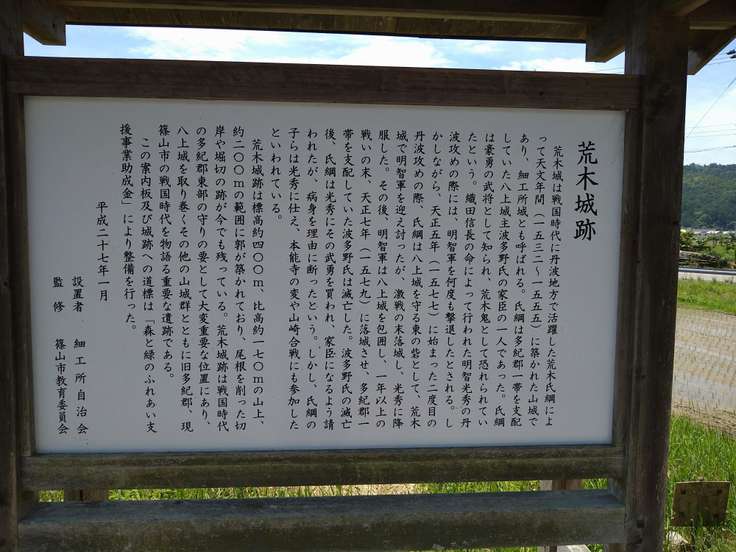 荒木城跡
荒木城は戦国時代に丹波地方で活躍した荒木氏綱によ
って天文年間（一五三二～一五五五）に築かれた山城で
あり、細工所城とも呼ばれる。氏綱は多紀郡一帯を支配
していた八上城主波多野氏の家臣の一人であった。氏綱
は豪勇の武将として知られ、荒木鬼として恐れられてい
たという。織田信長の命によって行われた明智光秀の丹
波攻めの際には、明智軍を何度も撃退したとされる。し
かしながら、天正五年（一五七七）に始まった二度目の
丹波攻めの際、氏綱は八上城を守る東の砦として、荒木
城で明智軍を迎え討ったが、激戦の末落城し、光秀に降
服した。その後、明智軍は八上城を包囲し、一年以上の
戦いの末、天正七年（一五七九）に落城させ、多紀郡一
帯を支配していた波多野氏は滅亡した。波多野氏の滅亡
後、氏綱は光秀にその武勇を買われ、家臣になるよう請
われたが、病身を理由に断ったという。しかし、氏綱の
子らは光秀に仕え、本能寺の変や山崎合戦にも参加した
といわれている。
荒木城跡は標高約四〇〇ｍ、比高約一七〇ｍの山上、
約二〇〇ｍの範囲に郭が築かれており、尾根を削った切
岸や堀切の跡が今でも残っている。荒木城跡は戦国時代
の多紀郡東部の守りの要として大変重要な位置にあり、
八上城を取り巻くその他の山城群とともに旧多紀郡、現
篠山市の戦国時代を物語る重要な遺跡である。
この案内板及び城跡への道標は「森と緑のふれあい支
援事業助成金」により整備を行った。
平成二十七年一月
設置者 細工所自治会
監修 篠山市教育委員会